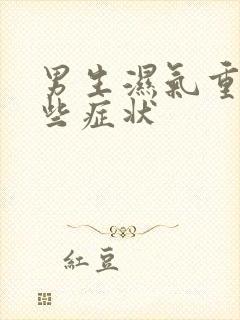 男生濕氣重
些症状
紅豆